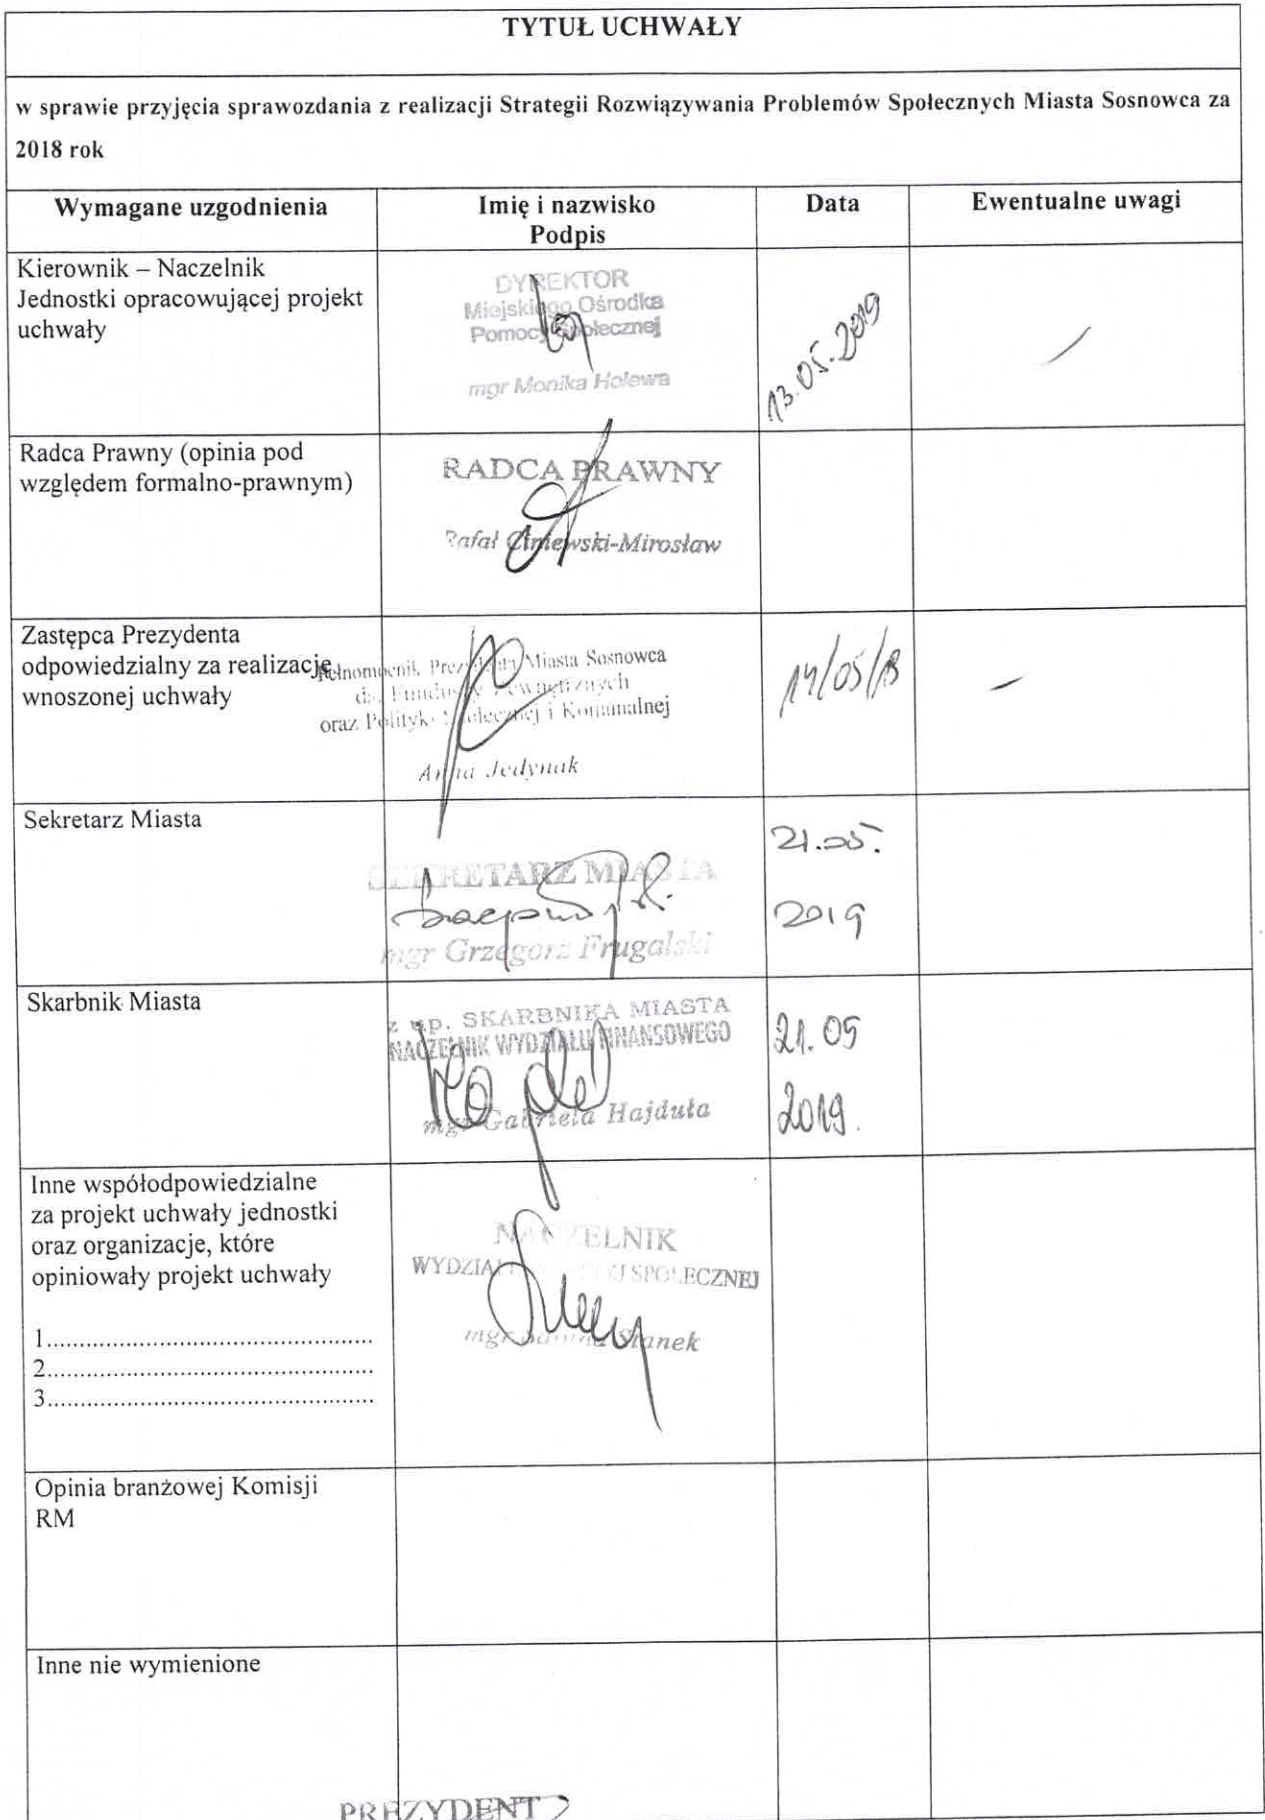 TYTUŁ UCHWAŁY
w sprawie przyjęcia sprawozdania z realizacji Strategii Rozwiązywania Problemów Społecznych Miasta Sosnowca za
2018 rok
Wymagane uzgodnienia
Imię i nazwisko
Podpis
Data
Ewentualne uwagi
Kierownik – Naczelnik
Jednostki opracowującej projekt
uchwały
DYREKTOR
Miejskiego Ośrodka
Pomocy Społecznej
mgr Monika Holewa
13.05.2019
Radca Prawny (opinia pod
względem formalno-prawnym)
RADCA PRAWNY
Rafał
Zastępca Prezydenta
odpowiedzialny za realizację
wnoszonej uchwały
Pełnomocnik Prezydenta Miasta Sosnowca
ds. Funduszy Zewnętrznych
oraz Polityki Społecznej i Komunalnej
Anna Jedynak
Sekretarz Miasta
SEKRETARZ MIASTA
mgr Grzegorz Frugalski
21.05.
2019
Skarbnik Miasta
z up. SKARBNIKA MIASTA
NACZELNIK WYDZIAŁU FINANSOWEGO
mgr Gabriela Hajduła
21.05
2019.
Inne współodpowiedzialne
za projekt uchwały jednostki
oraz organizacje, które
opiniowały projekt uchwały
1..................................................
2..................................................
3..................................................
NACZELNIK
WYDZIAŁ SPOŁECZNEJ
mgr Stanek
Opinia branżowej Komisji
RM
Inne nie wymienione
PREZYDENT